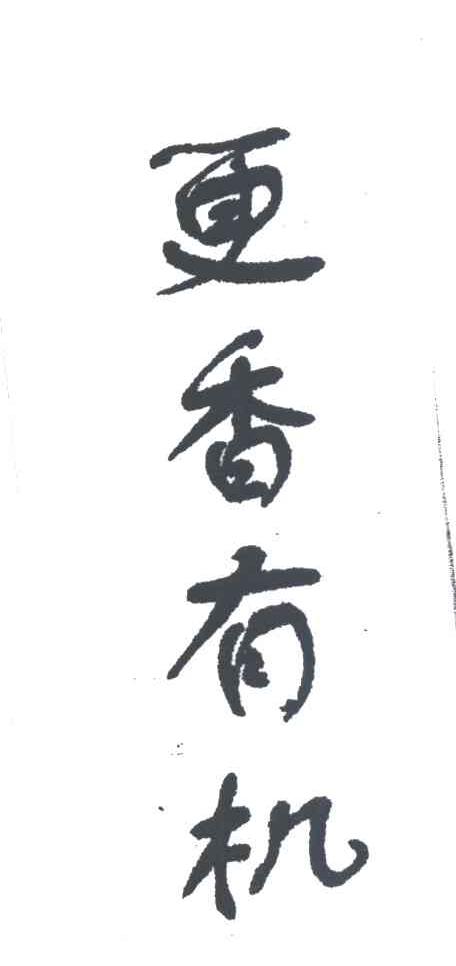 更香有机